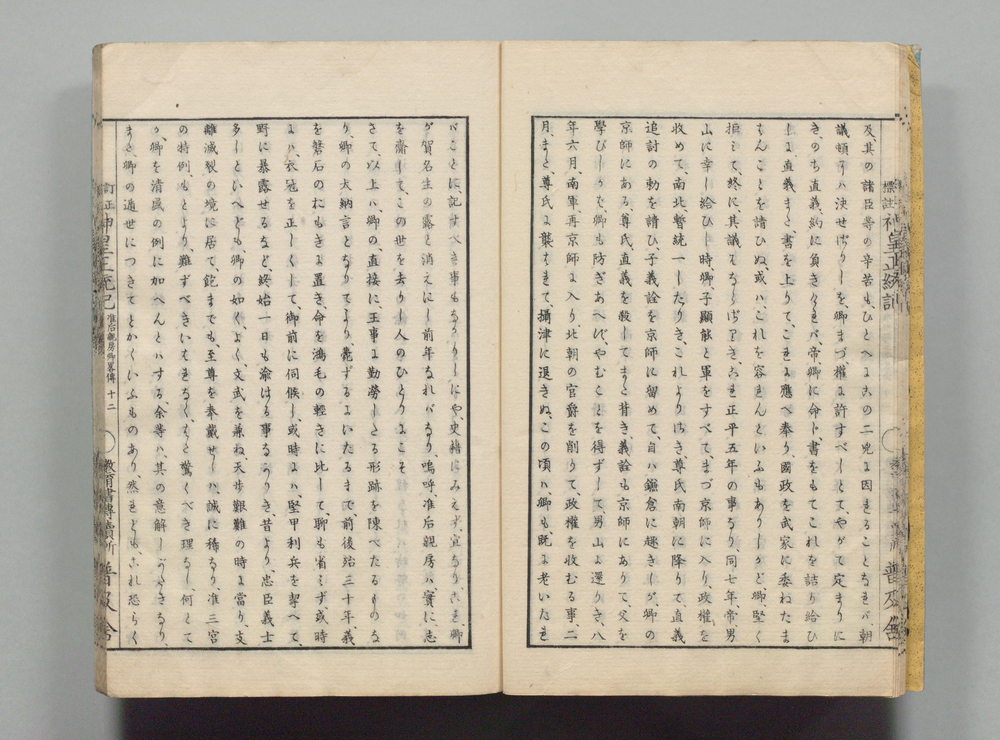 及其の諸臣等の辛苦も、ひとへに六の二兇に因れることなれバ、朝
議頓にハ決せざりしを、卿まづ權に許すべしとて、やがて定まりに
きのち直義約に負きくれバ、帝卿に命ド書をもてこれを詰り給ひ
しに直義また書を上りて、これに應へ奉り、國政を武家に委ねたま
もんことを請ひぬ或ハ、これを容れんといふもありしかど卿、堅く
拒ミて、終に其議にならざりき、六れ正平五年の事なり、同七年、帝男
山に幸し給ひし時、卿子顯能と軍をすべて、まづ京師に入り、政權を
收めて、南北、暫統一したりき、これよりさき、尊氏南朝に降りて直義
追討の勅を請ひ、子義詮を京師に留めて、自ハ鎌倉に趣きしが、卿の
京師にある、尊氏、直義を殺してまた背き、義詮も京師にありて、父を
學びしかで卿も防ぎあへず、やむことを得ずして、男山に還りき、八
年六月、南軍、再京師に入り北朝の官爵を削りて、政權を收むる事、二
月、また、尊氏に襲はれて、攝津に退きぬ、この頃ハ、卿も既に老いたれ
バことに記すべき事もなかりしにや、史籍にみえず、宜なり六れ、卿
が賀名生の露と消えにし前年なれバなり、嗚呼、准后親房ハ、實に志
を齎して、この世を去りし人のひとりにこそ
さて、以上ハ、卿の、直接に、王事に勤勞しとる形跡を陳べたるものな
り、卿の大納言となりてより、薨ずるにいたるまで前後殆三十年、義
を磐石のおもきに置き、命を鴻毛の輕きに比して、聊も省ミず、或時
にハ、衣冠を正しくして、御前に伺候し、或時にハ、堅甲利兵を挈へて、
野に暴露せるなど、終始一日も渝はる事なかりき昔より、忠臣義士
多しといへども、卿の如く、よく、文武を兼ね、天歩艱難の時に當り、支
離滅裂の境に居て、飽までも、至尊を奉戴せしハ、誠に稀なり、准三宮
の特例、もとより、難ずべきいはれなく、また驚くべき理なし何とて
か、卿を清盛の例に加へんとハする、余等ハ、其の意解しがたきなり、
また、卿の遁世につきて、とかくいふものあり、然れども、これ恐らく
訂正 標註 神皇正統記 准后親房卿畧傳 十二 教育書専賣所 普及舍
標註 神皇正統記
普及舍